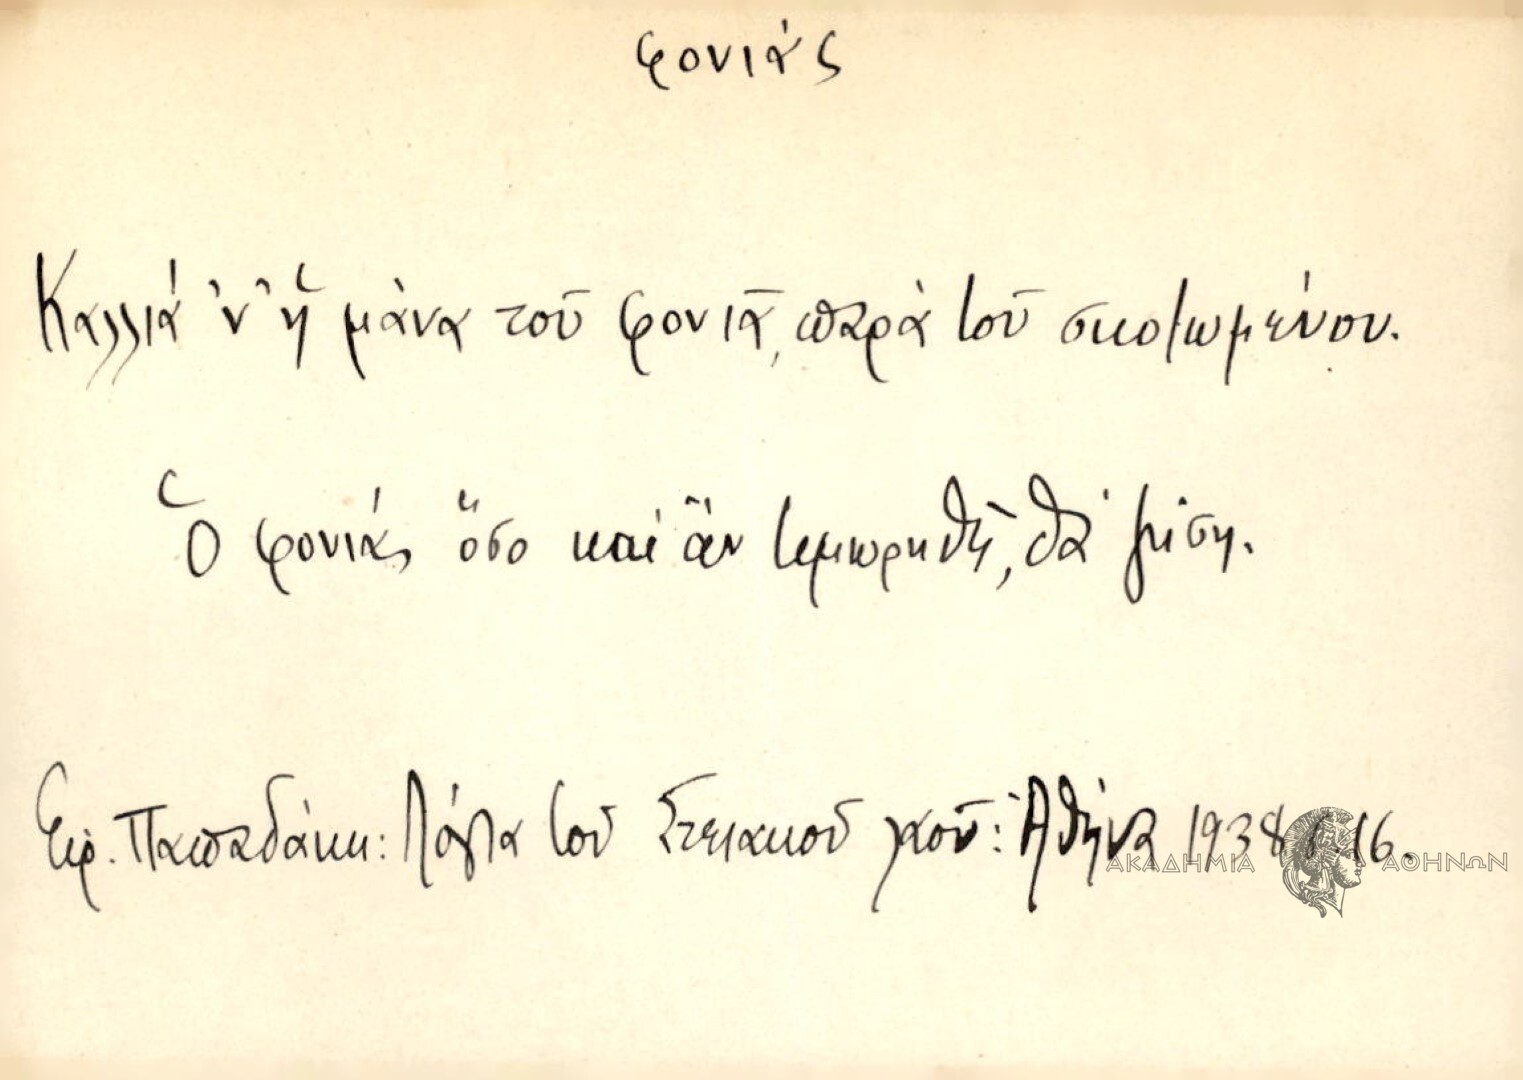 φονιάς
Καλλιά 'ν' ἡ μάνα τοῦ φονιᾶ, παρὰ τοῦ σκοτωμένου.
Ὁ φονιάς ὅσο καὶ ἂν τιμωρηθῆ, θὰ ζήση.
Εἰρ. Παπαδάκη: Λόγια τοῦ Στειακοῦ λαοῦ: Ἀθήνα 1938 16.
ΑΚΑΔΗΜΙΑ ΑΘΗΝΩΝ